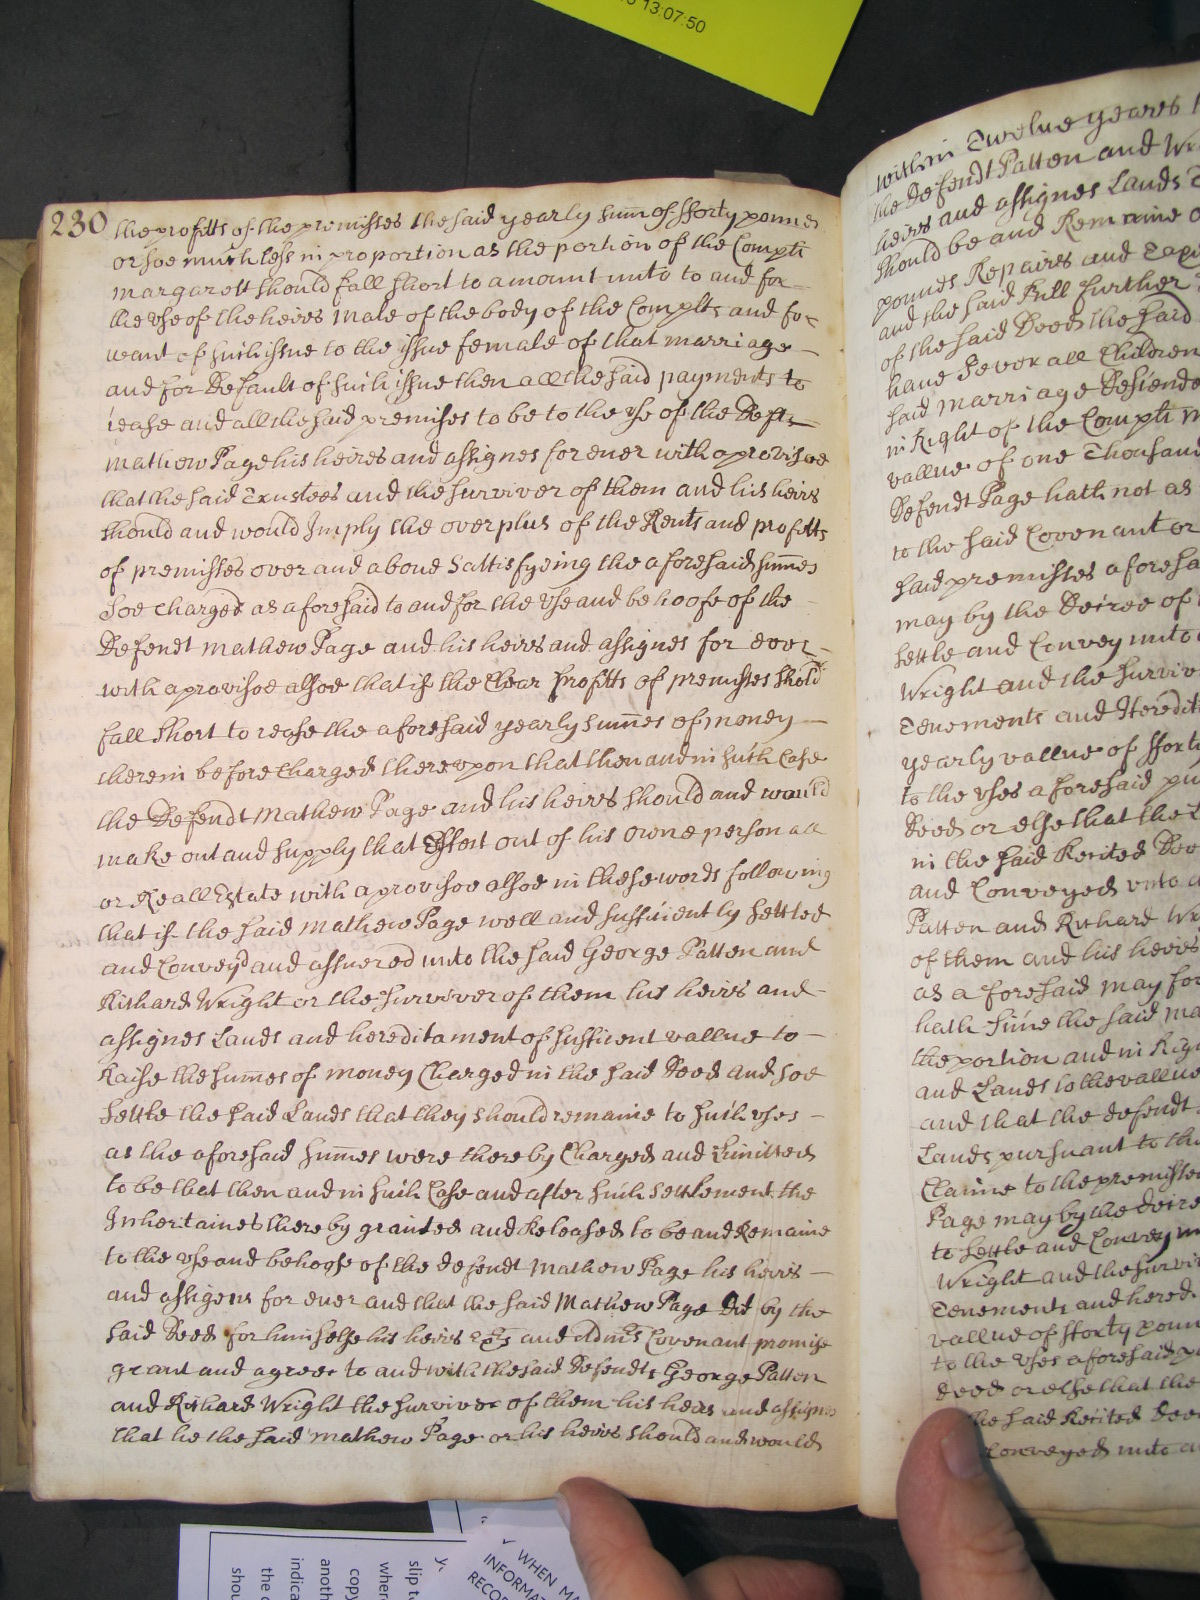 13:07:50
230
the profitts of the premisses the said yearly sum̄ of fforty pounds
or soe much less in proportion as the portion of the Complt
Margarett should fall short to amount unto to and for
the vse of the heires Male of the body of the Complts and for
want of such issue to the issue female of that marriage
and for Default of such issue then all the said payments to
cease and all the said premisses to be to the vse of the Deft
Mathew Page his heires and assignes for ever with a provisoe
that the said Trustees and the surviver of them and his heirs
should and would Imply the overplus of the Rents and profitts
of premisses over and aboue Sattisfyeing the aforesaid sum̄es
soe charged as aforesaid to and for the vse and behoofe of the
Defendt Mathew Page and his heires and assignes for ever
with a provisoe alsoe that if the Clear profitts of premisses shold
fall short to rease the aforesaid yearly sum̄es of money
therein before Charged thereupon that then and in such Case
the Defendt Mathew Page and his heires should and would
make out and supply that Effect out of his owne personall
or Reall Estate with a provisoe alsoe in these words following
that if the said Mathew Page well and suffitiently settled
and Convey'd and assuered unto the said George Patten and
Richard Wright or the surviver of them his heires and
assignes Lands and hereditament of sufficent vallue to
Raise the sum̄es of money Charged in the said Deed and soe
settle the said Lands that they should remaine to such vses
as the aforesaid sum̄es were thereby Charged and Limitted
to be that then and in such Case and after such settlement the
Inheritaines thereby granted and Released to be and Remaine
to the vse and behoofe of the defendt Mathew Page his heires
and assigens for ever and that the said Mathew Page did by the
said Deed for himselfe his heires exrs and admrs Covenant promise
grant and agree to and with the said Defendts George Patten
and Richard Wright the surviver of them his heirs and assignes
that he the said Mathew Page or his heires should and would
within Twelve yeares
the Defendt Patten and
heires and assignes Lands
should be and Remaine
pounds Repaires and
and the said Bill further
of the said Deed the said
have Severall Children
said marriage
in Right of the Complt
vallue of one Thousand
Defendt Page hath not as
to the said Covenant or
said premisses
may by the Decree of
settle and Convey unto
Wright and the
Tenements and
yearly vallue of
to the vses aforesaid
Deed or else that the
in the said Recited
and Conveyed vnto
Patten and Richard
of them and his heires
as aforesaid may for
hath since the said
the portion and in
and Lands to the vallue
and that the defendt
Lands pursuant to
Claime to the premisses
Page may by the
to settle and Convey
Wright and the
Tenements and
vallue of fforty
to the vses aforesaid
deed or else that the
the said Recited
Conveyed unto
WHEN
slip
copy
the